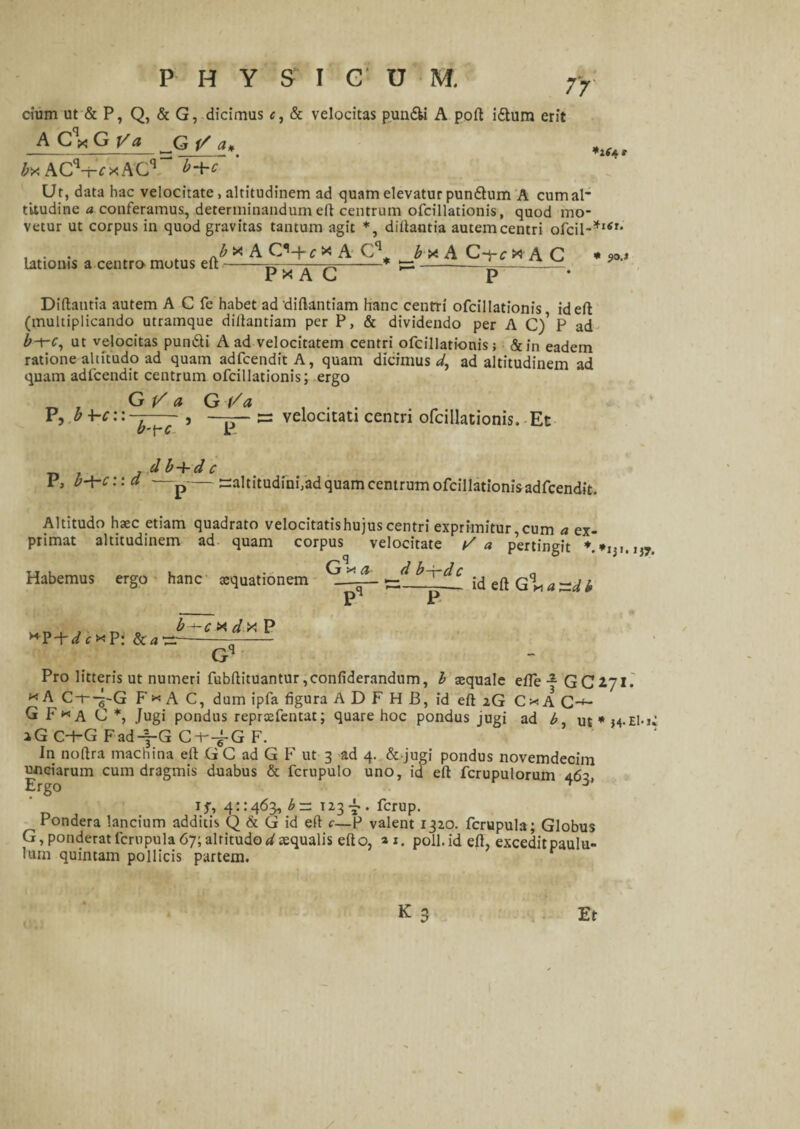 PHYSICUM. 77
cium ut & P, Q, & G, dicimus c, & velocitas puncti A post ictum erit
A C^q × G √a / b × AC^q + c × AC^q = G √ a / b+c. *
*264.
Ut, data hac velocitate, altitudinem ad quam elevatur punctum A cum al-
titudine a conferamus, determinandum est centrum oscillationis, quod mo-
vetur ut corpus in quod gravitas tantum agit *, distantia autem centri oscil-
*161.
lationis a centro motus est b × A C^q + c × A C^q / P × A C * = b × A C + c × A C / P.
* 90.
Distantia autem A C se habet ad distantiam hanc centri oscillationis, id est
(multiplicando utramque distantiam per P, & dividendo per A C) P ad
b+c, ut velocitas puncti A ad velocitatem centri oscillationis; & in eadem
ratione altitudo ad quam adscendit A, quam dicimus d, ad altitudinem ad
quam adscendit centrum oscillationis; ergo
P, b+c:: G √ a / b+c , G √a / P = velocitati centri oscillationis. Et
P, b+c:: d db+dc / P = altitudini, ad quam centrum oscillationis adscendit.
Altitudo hæc etiam quadrato velocitatis hujus centri exprimitur, cum a ex-
primat altitudinem ad quam corpus velocitate √ a pertingit *.
*131. 137.
Habemus ergo hanc æquationem G^q × a / P^q = db+dc / P id est G^q × a = d b
× P + d c × P; & a = b+c × d × P / G^q
Pro litteris ut numeri substituantur, considerandum, b æquale esse ⅔ GC
271.
× A C + ⅙ G F × A C, dum ipsa figura A D F H B, id est 2G C × A C +
G F × A C *, Jugi pondus repræsentat; quare hoc pondus jugi ad b, ut
* 34. El. 1.
2G C+G F ad ⅔ G C + ⅙ G F.
In nostra machina est G C ad G F ut 3 ad 4. & jugi pondus novemdecim
unciarum cum dragmis duabus & scrupulo uno, id est scrupulorum 463,
Ergo
15, 4::463, b = 123 ½. scrup.
Pondera lancium additis Q & G id est c—P valent 1320. scrupula; Globus
G, ponderat scrupula 67; altitudo d æqualis est 0, 21. poll. id est, excedit paulu-
lum quintam pollicis partem.
K 3 Et